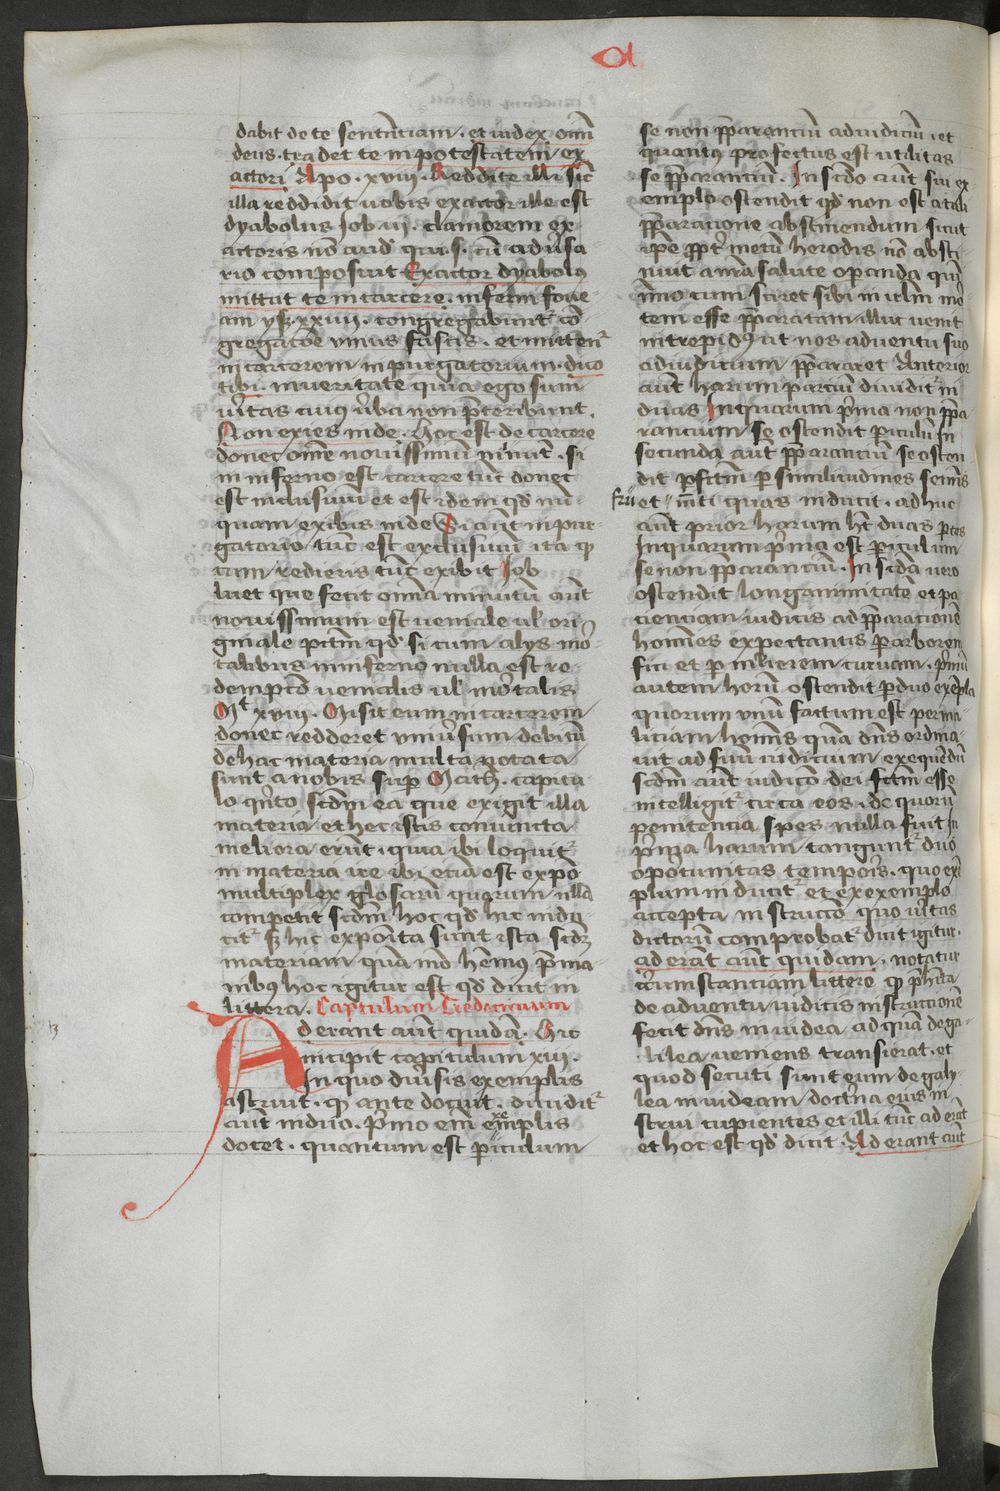 a
dabit de te sentenciam. et iudex oim̄
deus. tradet te in potestatem ex
actori Apo. xviii. Reddite illi sic̄
illa reddidit uobis exactor ille est
dyabolus Job iij. clamorem ex
actoris nō aud qui. s. cū aduersa
rio composuit Exactor dyabolus
mittat te in carcerē. inferni foue
am ys. xxiiii. congregabunt̄ cō
gregacōe vnius fascis. et mitten̄
in carcerem in purgatorium. dico
tibi. in ueritate quia ego sum
ūitas cuiꝰ ūba non p̄teribunt.
Non exies inde. hoc est de carcere
donec om̄e nouissimū minut̄. si
in inferno est carcere tūc donec
est inclusiuū et est idem qd̄ nū-
quam exibis inde Si aūt in pur
gatorio tūc est exclusiuū ita qꝫ
cum redieris tūc exibit Job
luet que fecit omīa minutū aūt
nouissimum est ueniale ul̄ ori
ginale pctm̄ qd̄ si cum alijs mor
talibus in inferno nulla est re
dempcō uenialis ul̄ mōtalis
Mt xviii. Misit eum in carcerem
donec redderet vniūsum debitū
de hac materia multa notata
sunt a nobis sup̄ Math. capitu
lo qn̄to scdm̄ ea que exigit illa
materia et hec istis coniuncta
meliora erūt. quia ibi loquit̄
in materia ire ibi eciā est expō
multiplex glosarū quarum illa
competit scdm̄ hoc qd̄ hic indu
cit̄ sꝫ hic exponita sunt ista scdꝫ
materiam quā mō hēmus p̄ ma
nibꝰ hoc igitur est qd̄ dicit in
littera. Capitulum Tredecimum
Aderant aūt quidā. Hic
incipit capitulum xiii.
In quo diūsis exemplis
astruit. qꝫ ante docuit. diuidit̄
aūt in duo. p̄mo em̄ exemplis
docet. quantum est p̄iculum
se non pp̄arancium ad iudiciū. et
quantꝰ profectus est utilitas
se pp̄arancium. In scdo aūt sui ex
emplo ostendit qd̄ non est a tali
pp̄aracione abstinendum sicut
ipe ppt̄ metū herodis nō absti-
nuit a nr̄a salute operanda qui
īmo cum sciret sibi in ilrl̄m mor
tem esse pp̄aratam illuc uenit
intrepidꝰ ut nos aduentu suo
ad iudicium pp̄araret Anterior
aūt harum parcium diuidit̄ in
duas In quarum p̄ma non pp̄a
rancium se ostendit p̄iculū In
secunda aūt pp̄arancium se osten
dit p̄fctm̄ p̄ similitudines semīs
et quas inducit. adhuc
aūt prior harum hꝫ duas p̄tes
In quarum p̄ma est p̄iculum
se non pp̄aranciū. In scda uero
ostendit longanimitatē et pa
cienciam iudicis ad pp̄aracionē
homīes expectantis p̄ arborem
fici et p̄ mulierem curuam. p̄mū
autem horū ostendit p̄ duo exēpla
quorum vnū factum est per ma
liciam homīs quā dn̄s ordina-
uit ad suū iudicium exequēdū
scdm̄ aūt iudicō dei fctm̄ esse
intelligit̄ circa eos. de quorū
penitencia spes nulla fuit In
p̄ma harum tangunt̄ duo
oportunitas tempoīs. quo exē
plum inducit̄ et ex exemplo
accepta instructō quo ūitas
dictorū comprobat̄ dicit igitur.
aderāt aūt quidam. notatur
circumstanciam littere qꝫ p̄hita
de aduentu iudicis instructionē
fecit dn̄s in iudea ad quā de ga
lilea ueniens transierat. et
quod secuti sunt eum de galy
lea in iudeam doctrīa eius in
strui cupientes et illi tūc aderāt
et hoc est qd̄ dicit. Aderant aūt